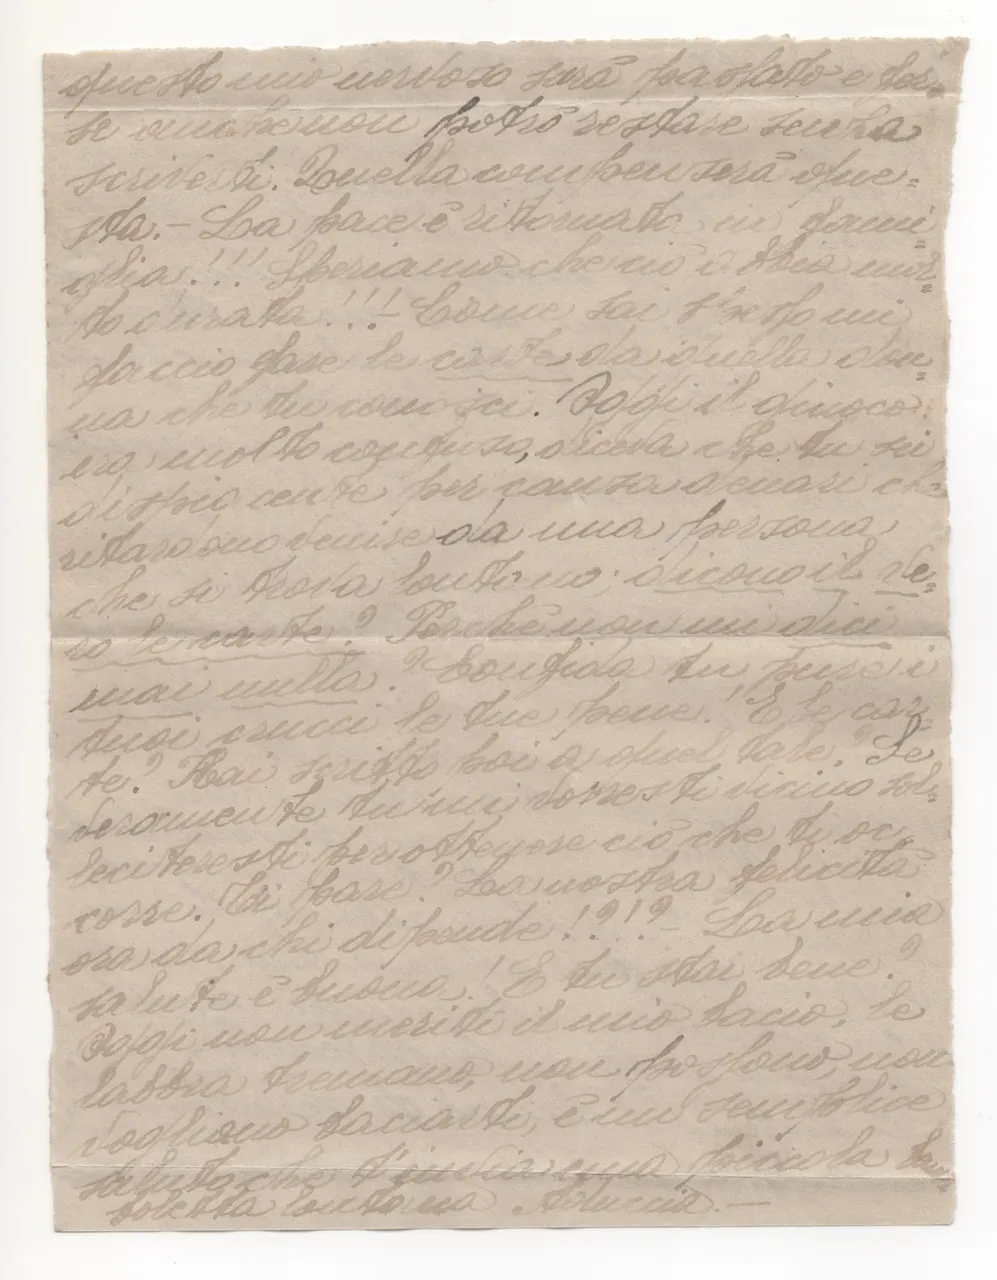 questo mio nervoso sarà passato e for=
se anche non potrò restare senza
scriverti. Quella compenserà que=
sta.- La pace è ritornata in fami=
glia!!! Speriamo che ciò abbia mol=
to durata!!!- Come sai spesso mi
faccio fare le carte da quella don=
na che tu conosci. Oggi il giuoco
era molto confuso, diceva che tu sei
dispiacente per causa denari che
ritardano venire da una persona
che si trova lontano; dicono il ve=
ro le carte? Perchè non mi dici
mai nulla? Confida tu pure i
tuoi crucci le tue pene! E le car=
te? Hai scritto poi a quel tale? Se
veramente tu mi vorresti vicino sol=
leciteresti per ottenere ciò che ti oc=
corre. Ti pare? La nostra felicità
ora da chi dipende!?!?- La mia
salute è buona! E tu stai bene?
Oggi non meriti il mio bacio, le
labbra tremano, non possono, non
vogliono baciarti, è un semplice
saluto che t'invia una piccola bam=
boletta lontana